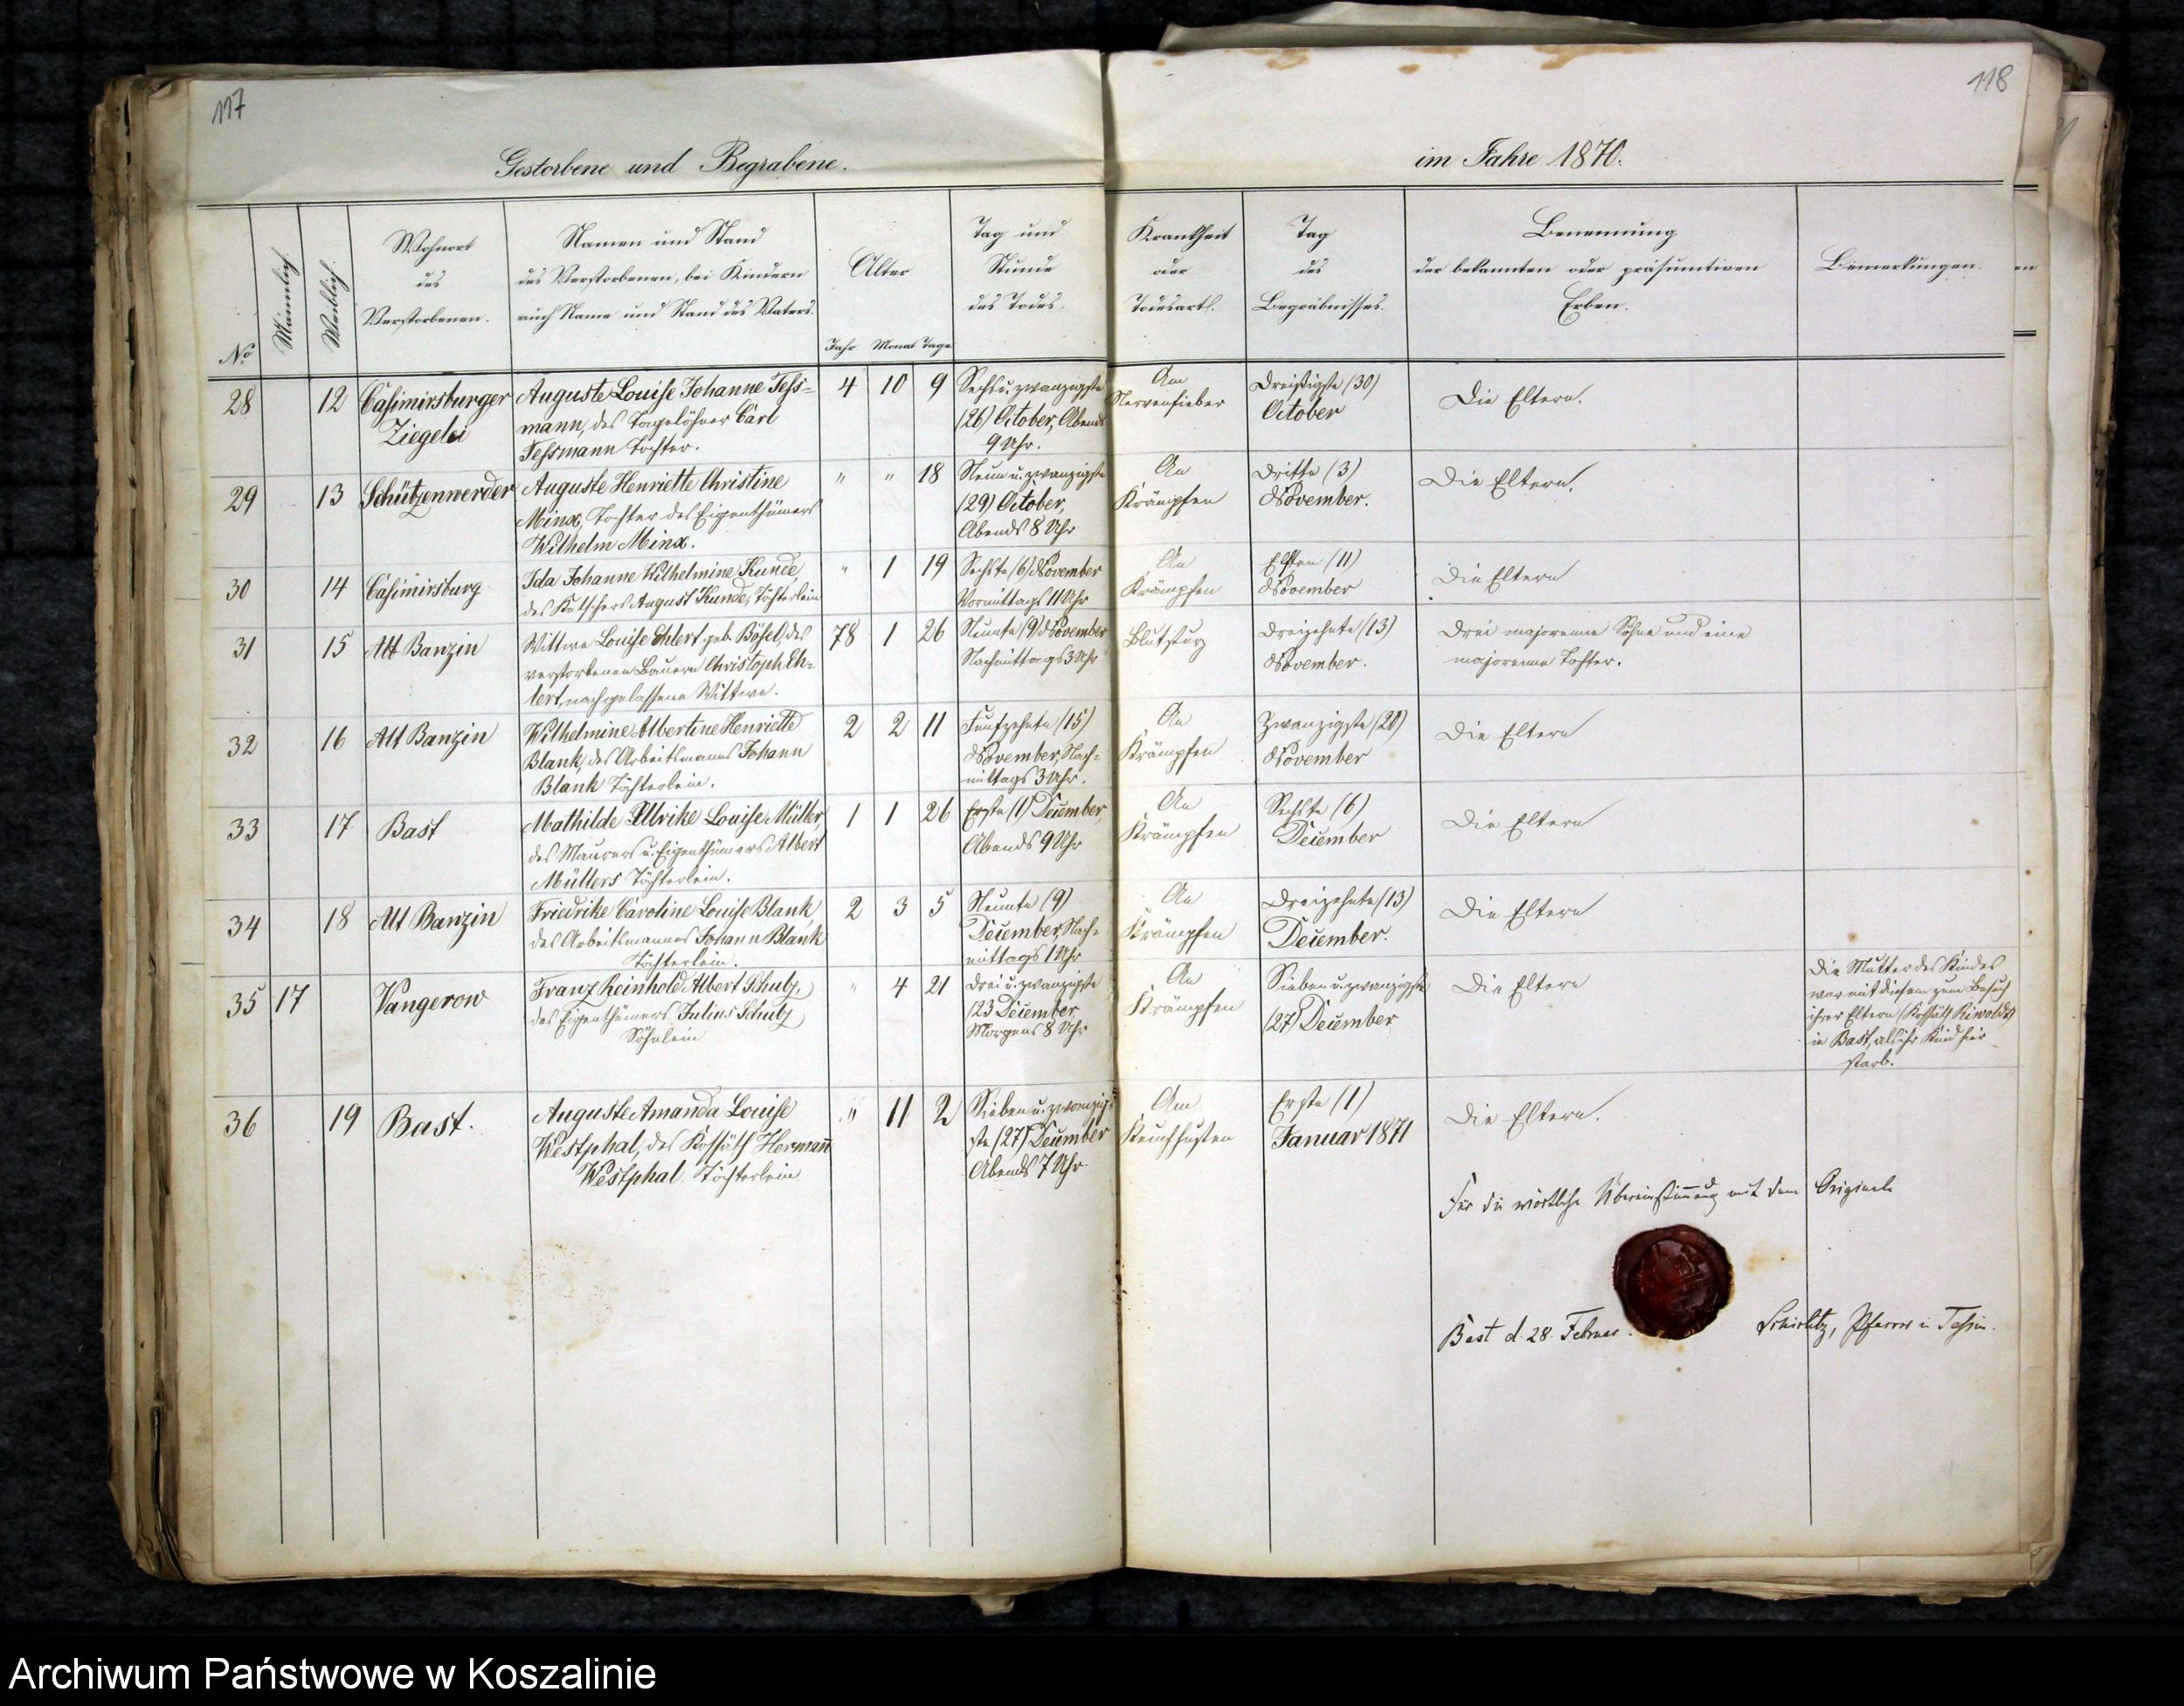 117
118
Gestorbene und Begrabene.
im Jahre 1870.
No
Männlich
Weiblich
Wohnort
des
Verstorbenen.
Namen und Stand
des Verstorbenen, bei Kindern
auch Name und Stand des Vaters.
Alter
Jahr Monat Tage
Tag und
Stunde
des Todes.
Krankheit
oder
Todesart.
Tag
des
Begräbnisses.
Benennung
der bekannten oder präsumtiven
Erben.
Bemerkungen.
28
12
Casimirsburger
Ziegelei
Auguste Louise Johanne Tess-
mann, des Tagelöhner Carl
Tessmann Tochter.
4 10 9
Sechsu.zwanzigste
(26) October, Abends
9 Uhr.
Am
Nervenfieber
Dreißigste (30)
October
Die Eltern.
29
13
Schützenwerder
Auguste Henriette Christine
Minx, Tochter des Eigenthümers
Wilhelm Minx.
" " 18
Neunu.zwanzigste
(29) October,
Abends 8 Uhr
An
Krämpfen
Dritte (3)
November.
Die Eltern.
30
14
Casimirsburg
Ida Johanne Wilhelmine Kunde,
des Kutschers August Kunde, Töchterlein
" 1 19
Sechste (6) November
Vormittags 11 Uhr
An
Krämpfen
Elften (11)
November
Die Eltern
31
15
Alt Banzin
Wittwe Louise Ehlert geb. Bösel, des
verstorbenen Bauern Christoph Eh-
lert, nachgelassene Wittwe.
78 1 26
Neunte (9) November
Nachmittags 3 Uhr
Blutsturz
Dreizehnte (13)
November.
Drei majorenne Söhne und eine
majorenne Tochter.
32
16
Alt Banzin
Wilhelmine Albertine Henriette
Blank, des Arbeitsmanns Johann
Blank Töchterlein.
2 2 11
Funfzehnte (15)
November, Nach-
mittags 3 Uhr.
An
Krämpfen
Zwanzigste (20)
November
Die Eltern
33
17
Bast
Mathilde Ulrike Louise Müller,
des Maurers u. Eigenthümers Albert
Müllers Töchterlein.
1 1 26
Erste (1) December,
Abends 9 Uhr
An
Krämpfen
Sechste (6)
December
Die Eltern
34
18
Alt Banzin
Friedrike Caroline Louise Blank,
des Arbeitsmannes Johann Blank
Töchterlein.
2 3 5
Neunte (9)
December, Nach-
mittags 1 Uhr
An
Krämpfen
Dreizehnte (13)
December.
Die Eltern
35
17
Vangerow
Franz Reinhold Albert Schulz,
des Eigenthümers Julius Schulz
Söhnlein
" 4 21
Drei u. zwanzigste
(23 December,
Morgens 8 Uhr
An
Krämpfen
Sieben u. zwanzigste
(27) December
Die Eltern
Die Mutter des Kindes
war mit diesem zum Besuch
ihrer Eltern (Kossäth
in Bast, als ihr Kind hier
starb.
36
19
Bast.
Auguste Amanda Louise
Westphal, des Kossäth Hermann
Westphal Töchterlein
" 11 2
Sieben u. zwanzig-
ste (27) December
Abends 7 Uhr
Am
Keuchhusten
Erste (1)
Januar 1871
Die Eltern.
Für die wörtliche Übereinstimmung mit dem Originale
Bast d. 28. Februar.
Pfarrer in Tessin.
Archiwum Państwowe w Koszalinie